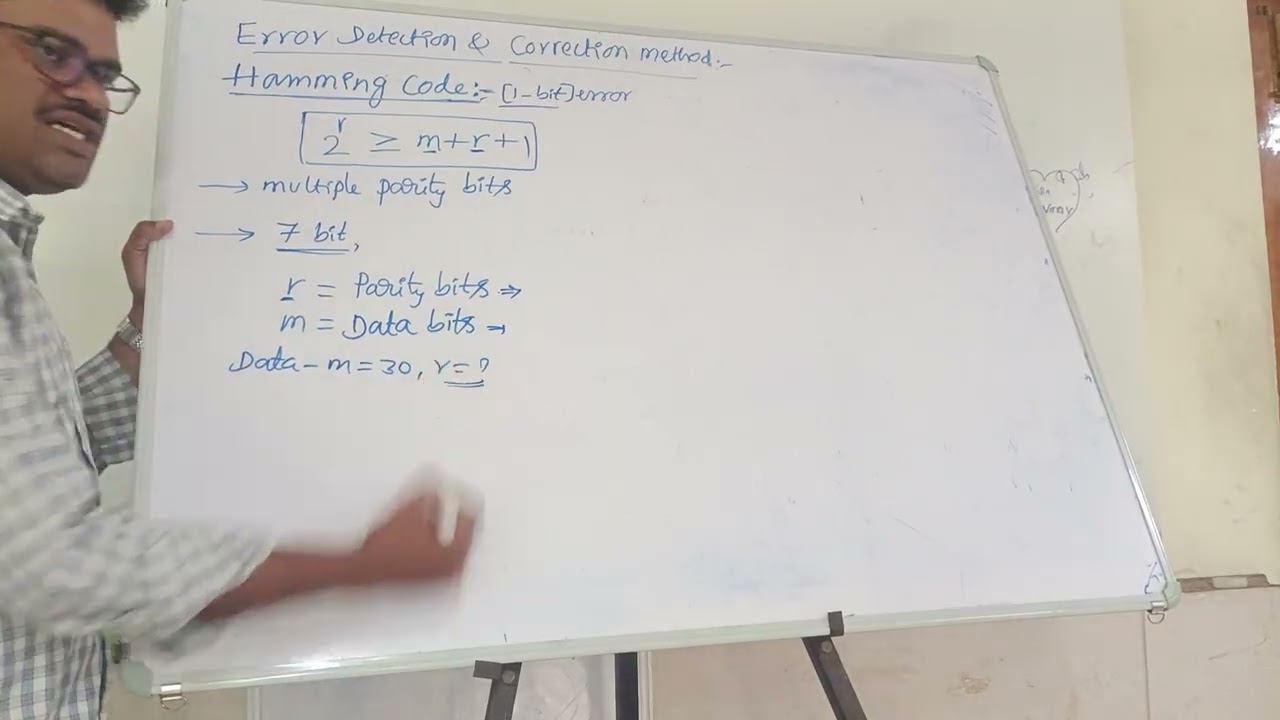 Error Detection & Correction method:-
Hamming Code:- [1-bit] error
2^r ≥ m+r+1
→ multiple parity bits
→ 7 bit,
r = Parity bits ⇒
m = Data bits →
Data - m = 30, r = ?